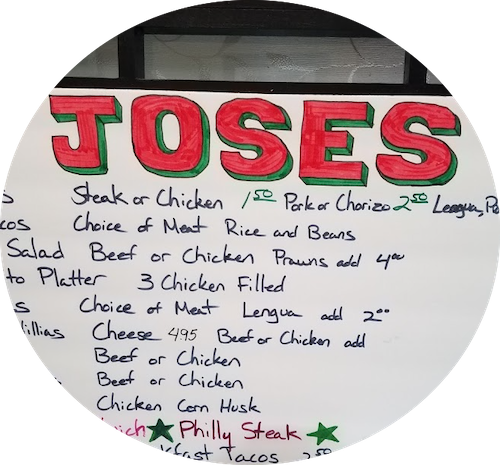 JOSES
Steak or Chicken 1.50 Pork or Chorizo 2.50 Lengua,
Choice of Meat Rice and Beans
Salad Beef or Chicken Prawns add 4.00
to Platter 3 Chicken Filled
Choice of Meat Lengua add 2.00
Cheese 4.95 Beef or Chicken add
Beef or Chicken
Beef or Chicken
Chicken Corn Husk
Philly Steak
Tacos 2.50